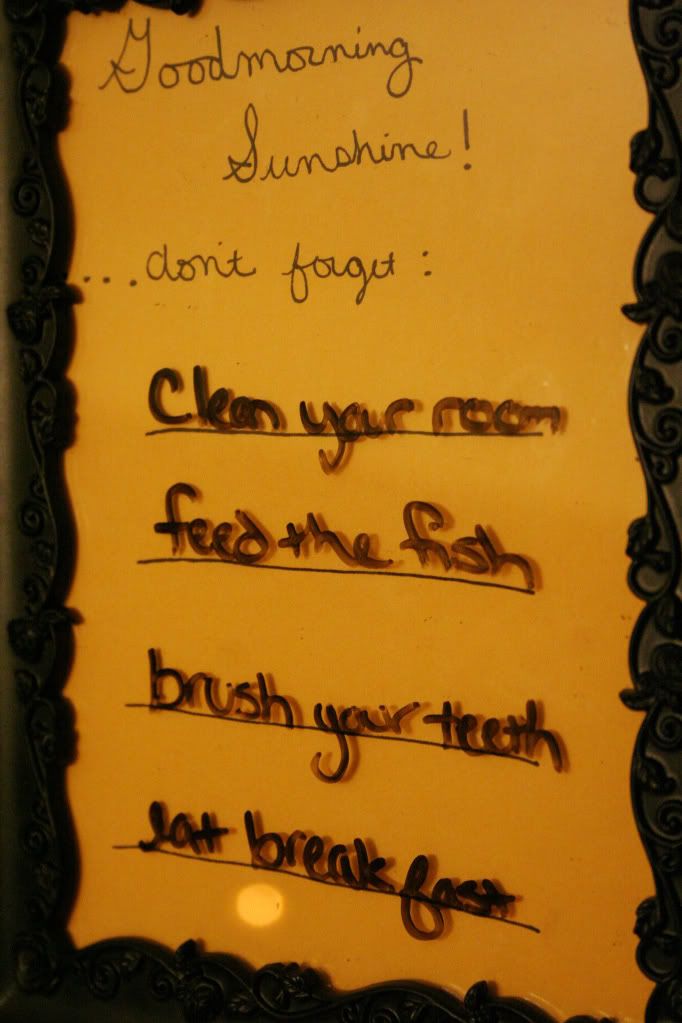 Goodmorning
Sunshine!
...don't forget:
Clean your room
feed the fish
brush your teeth
eat breakfast